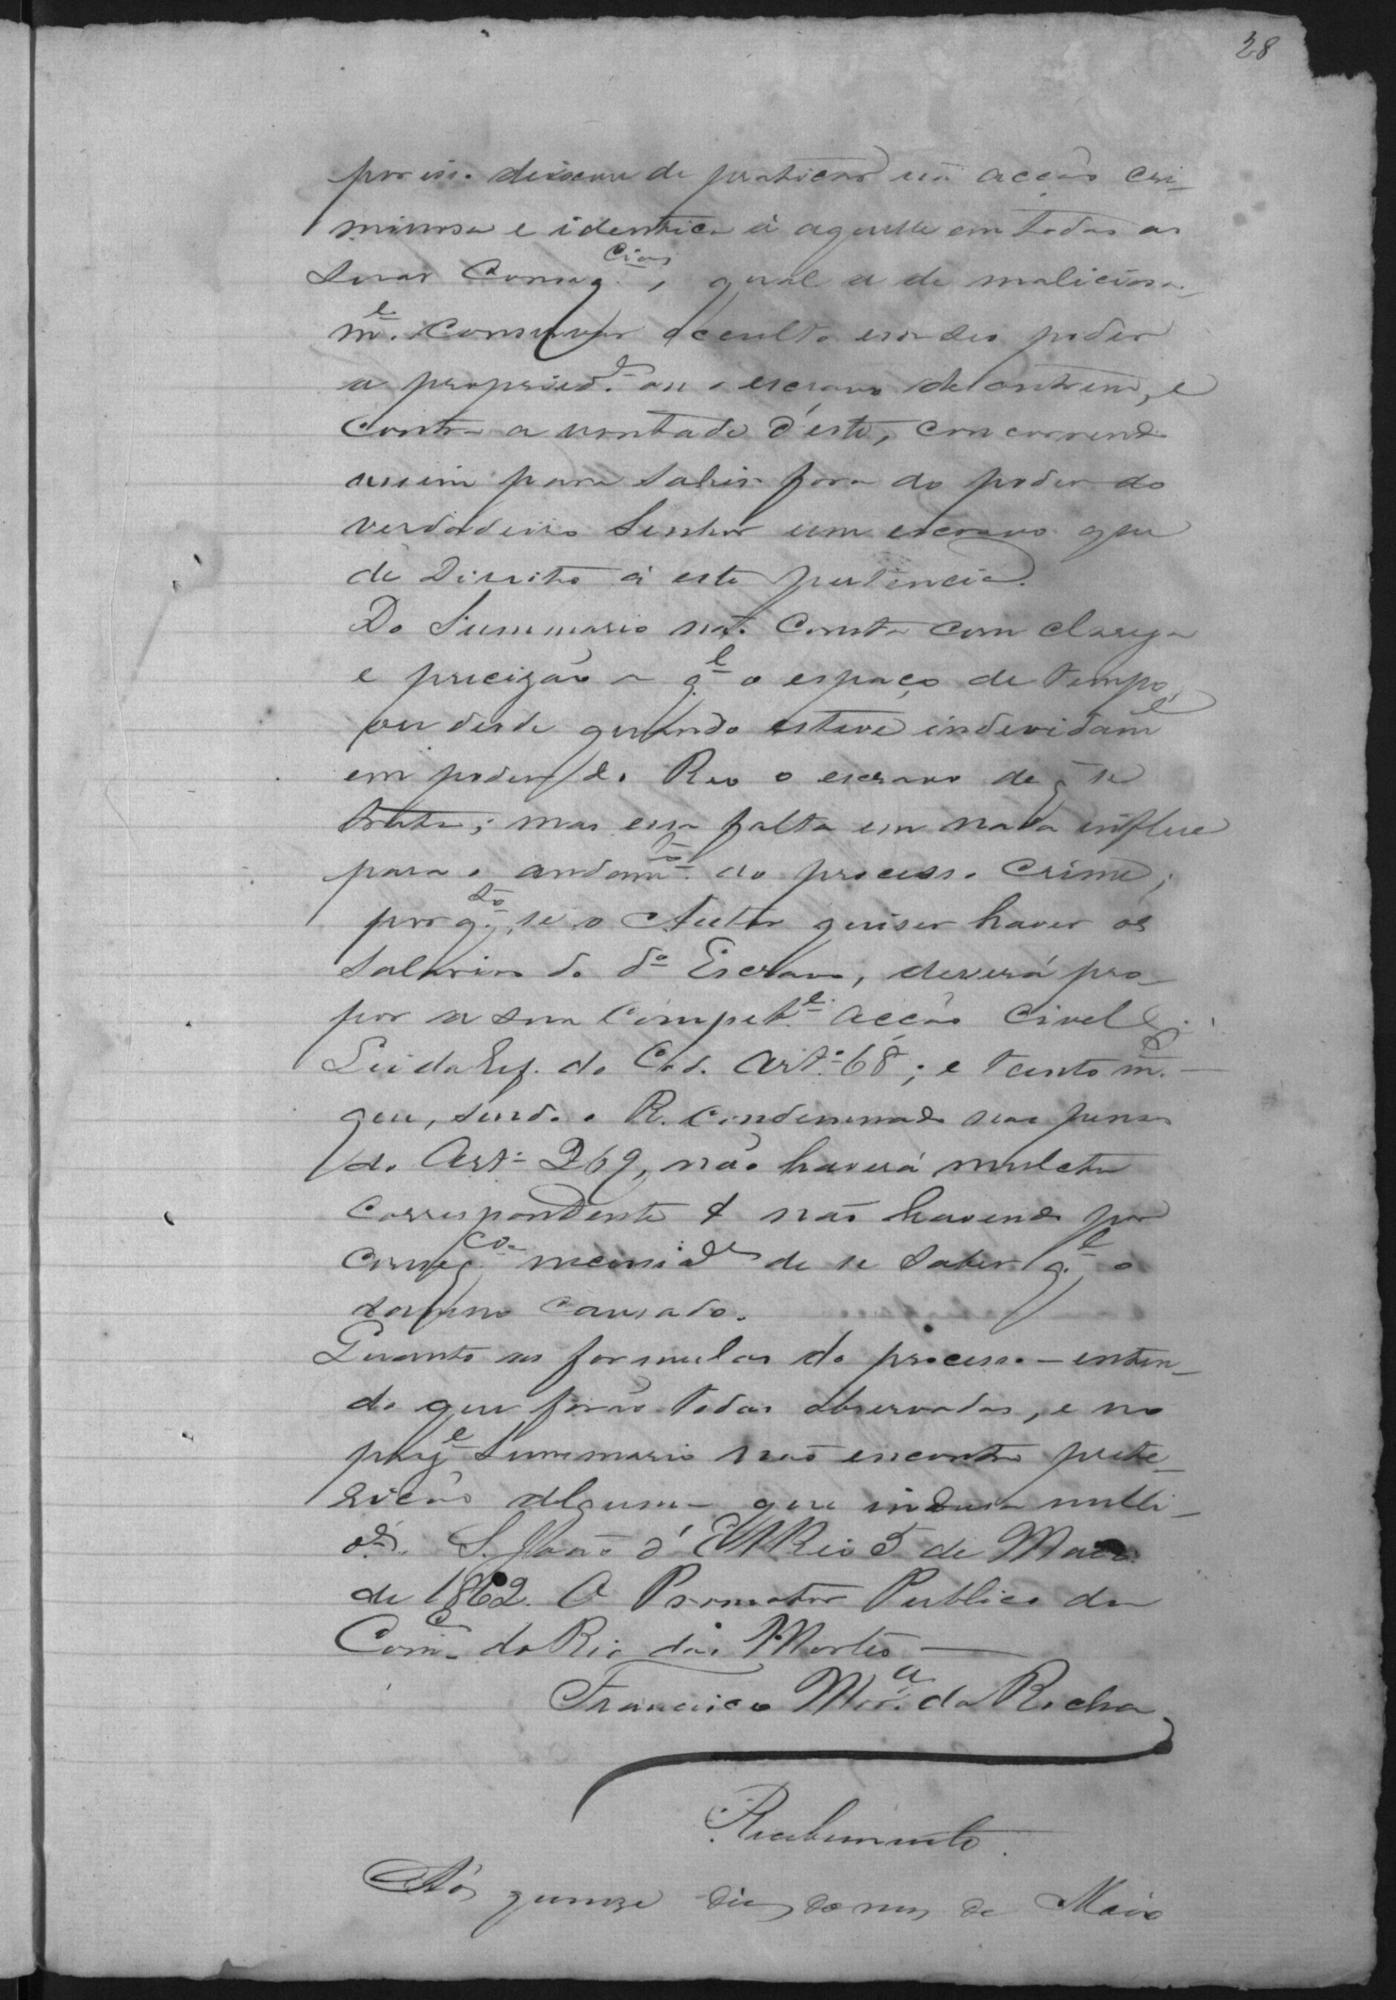 28
por isso deixou de praticar uã acção cri-
minosa e identica á aquella em todas as
suas Conseq.cias, qual a de maliciosa-
m.e conservar occulto em seo poder
a propried.e ou o escravo de outrem, e
contra a vontade d'este, concorrendo
assim para sahir fora do poder do
verdadeiro Senhor um escravo que
de Direito á este pertencia.
Do Summario não Consta com clareza
e precizão q.l o espaço de tempo,
ou desde quando esteve indevidam.e
em poder do Reo o escravo de q̃ se
trata; mas essa falta em nada influe
para o andam.to do processo crime;
porq.to, se o Autor quiser haver os
salarios do d.o Escravo, deverá pro-
por a sua Compet.e acção Civel
Lei da Ref. do Cod. Art.o 68; e tanto m.
que, sendo o R. condemnado nas penas
do Art.o 269, não haverá mulcta
correspondente & não havendo por
conseg. necessid.e de se saber q.l o
damno causado.
Quanto as formulas do processo - enten-
do que forão todas observadas, e no
prez.e Summario não encontro prete-
rição alguma que induza nulli-
d.e. S. João d'El Rei 5 de Maio
de 1862. O Promotor Publico da
Com.ca do Rio das Mortes
Francisco Mor.a da Rocha
Recebimento.
Aos quinze dias do mez de Maio